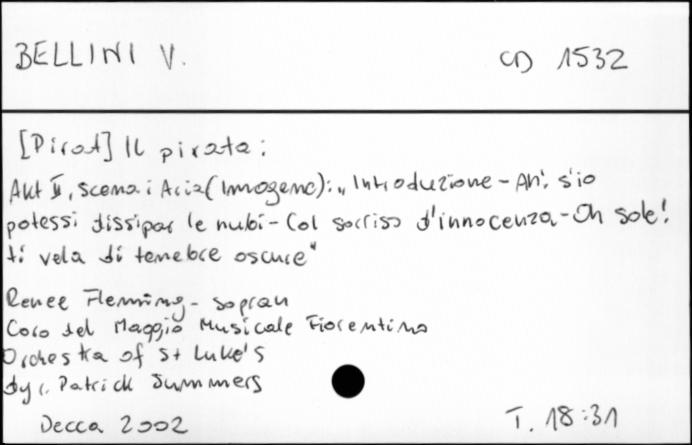 BELLINI V.
CD 1532
[Pirat] Il pirata:
Akt II, scena i Aria (Imogene): „Introduzione - Ah! s'io
potessi dissipar le nubi - Col sorriso d'innocenza - Oh sole!
ti vela di tenebre oscure"
Renee Flemming - sopran
Coro del Maggio Musicale Fiorentino
Orchestra of St Luke's
dyr. Patrick Summers
Decca 2002
T. 18:31